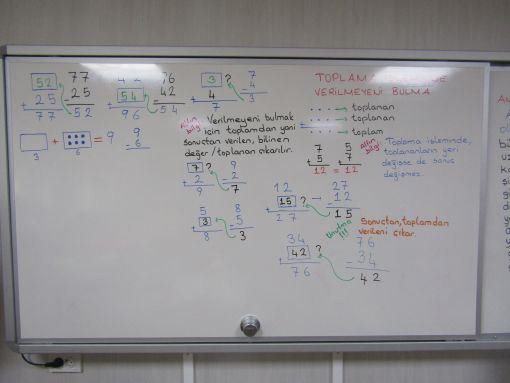 TOPLAMA
VERİLMEYENİ BULMA
52 77
+ 25 - 25
77 52
42
+ 54 - 42
96 54
3 ? 7
+ 4 - 4
7 3
+ = 9 9
3 6 - 6
Altın bilgi
Verilmeyeni bulmak
için toplamdan yani
sonuçtan verilen, bilinen
değer/toplanan çıkarılır.
toplanan
+ toplanan
toplam
7 5
+ 5 + 7
12 = 12
Altın bilgi
Toplama işleminde,
toplananların yeri
değişse de sonuç
değişmez.
7 ? 9
+ 2 - 2
9 7
5 8
+ 3 - 5
8 3
12 27
+ 15 ? - 12
27 15
Unutma!!!
Sonuçtan, toplamdan
verileni çıkar.
34 76
+ 42 ? - 34
76 42